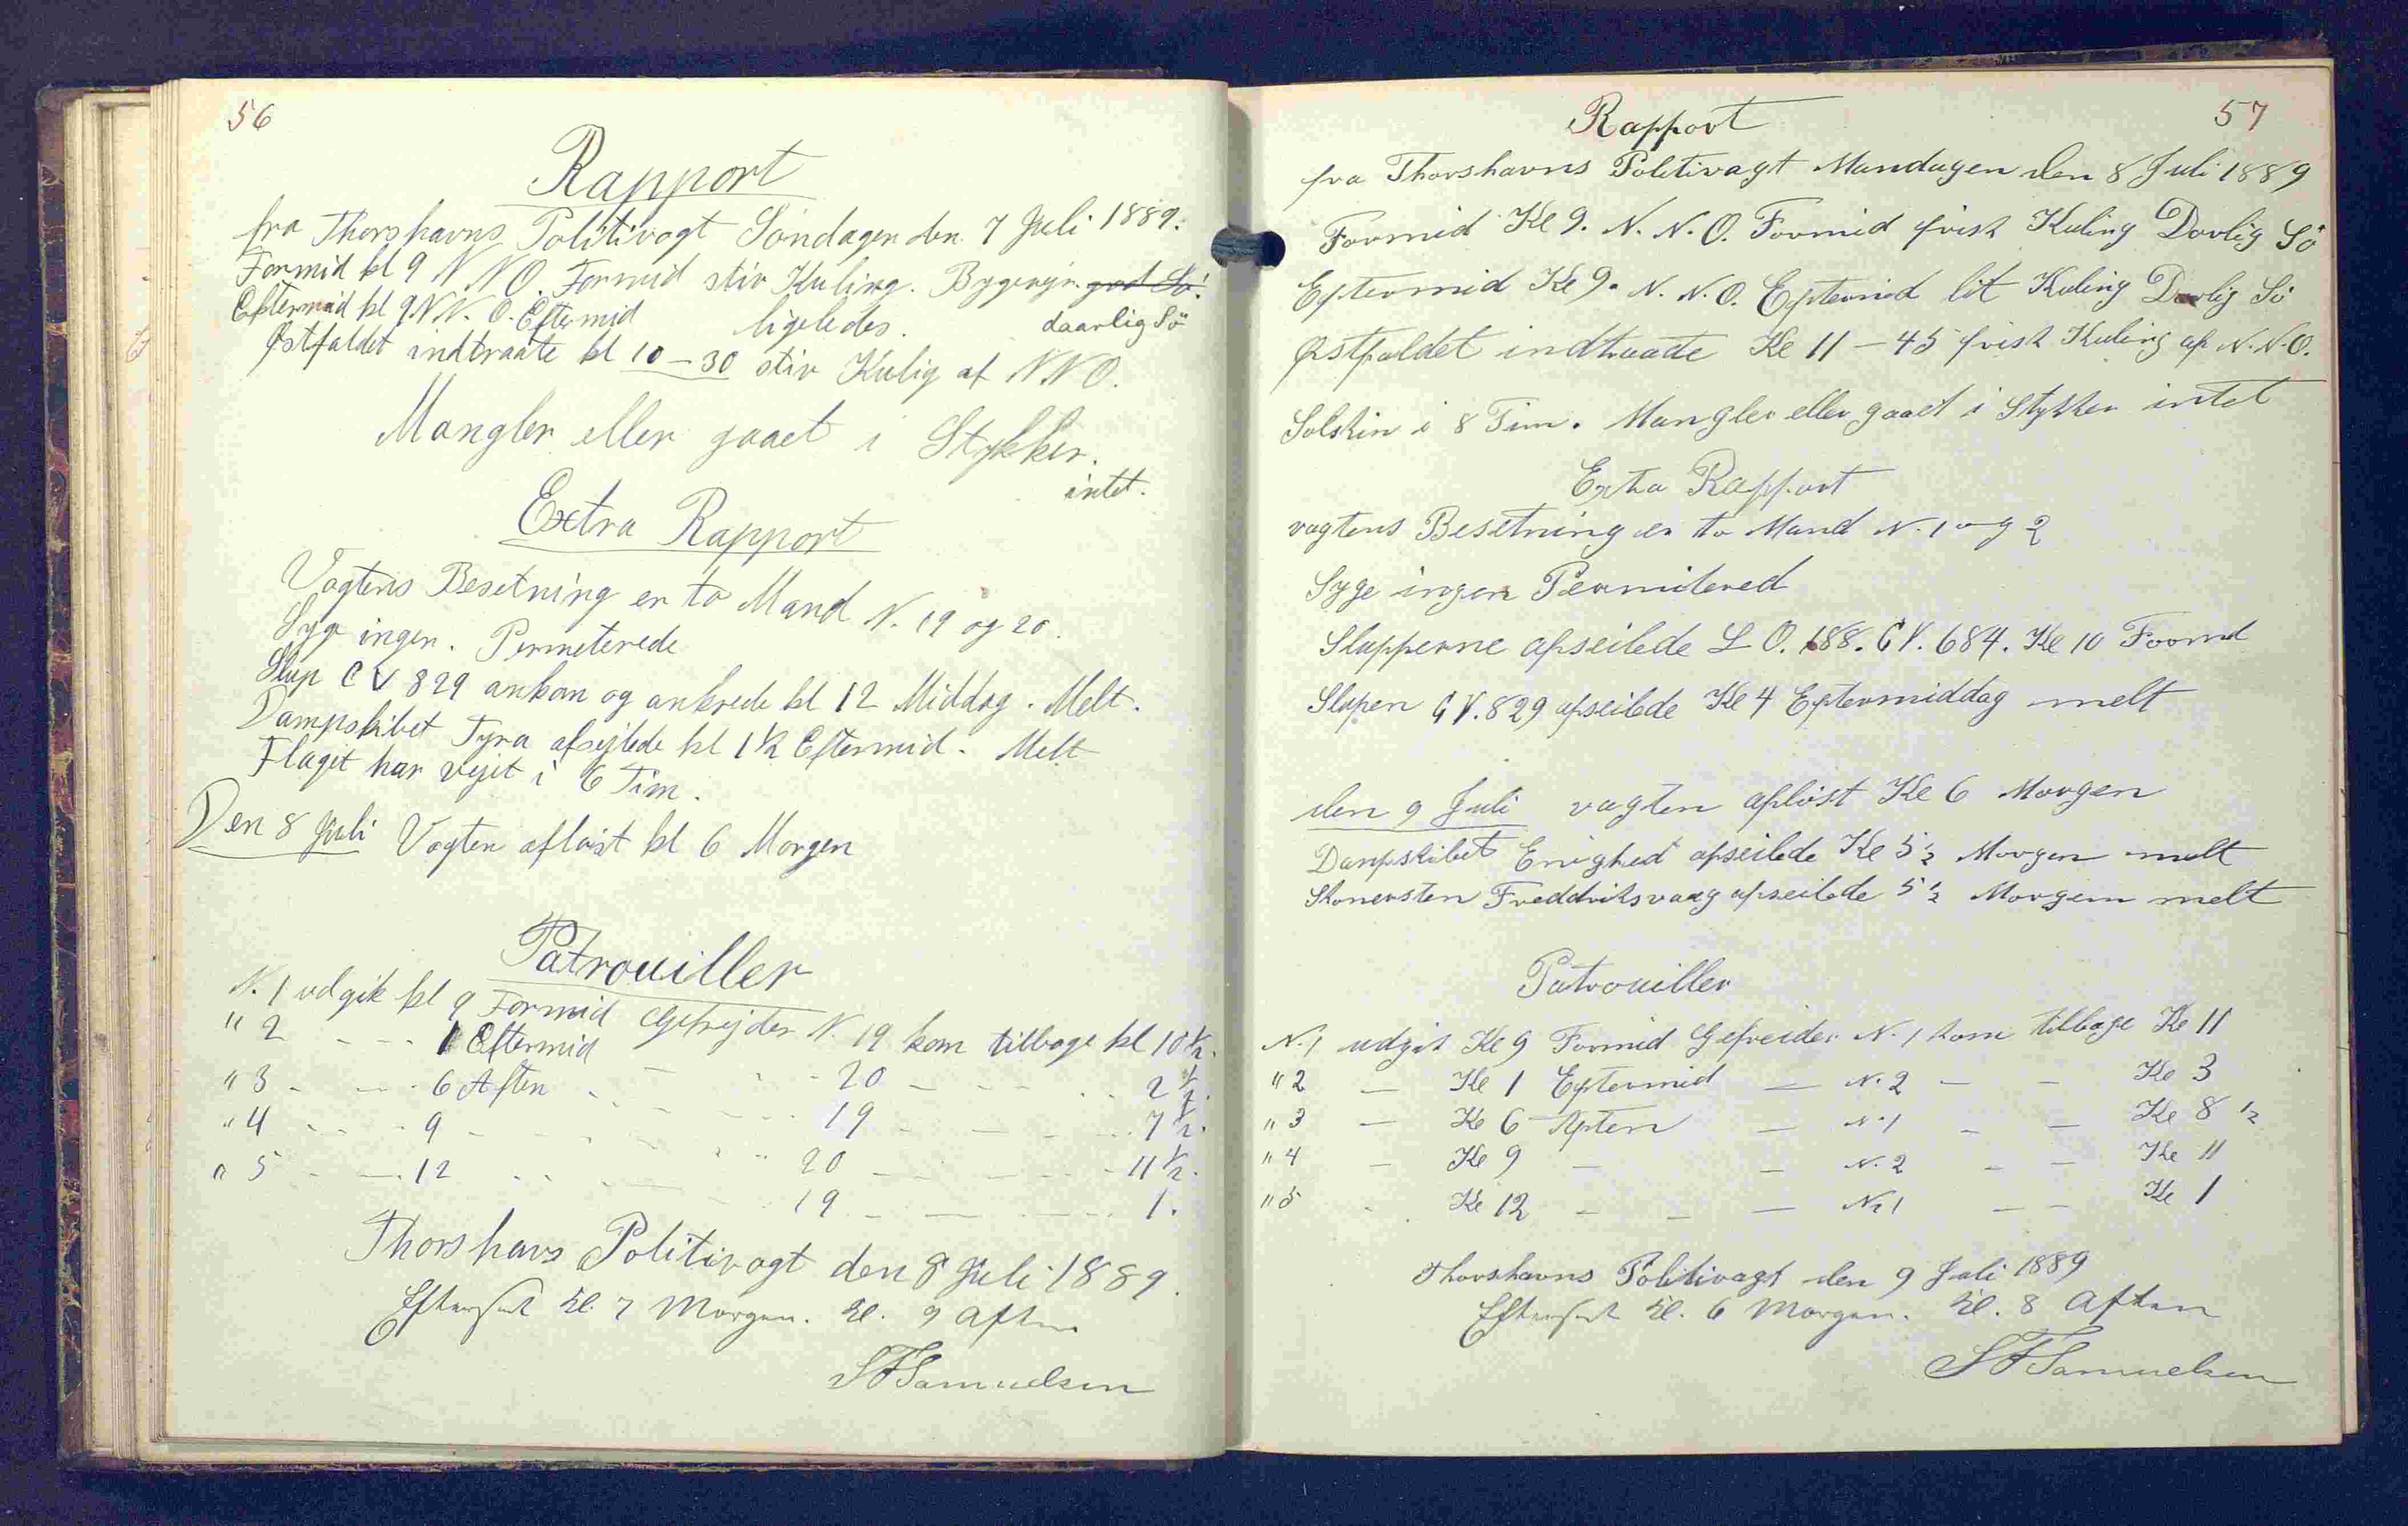 56
Rapport
fra Thorshavns Politivagt Søndagen den 7 Juli 1889.
Formid kl 9 N N O. Formid stiv Kuling. Bygevejr. god Sö.
Eftermid kl 9 N N. O. Eftermid ligeledes. daarlig Sö
Østfaldet indtraate kl 10-30 stiv Kulig af N N O.
Mangler eller gaaet i Stykker.
intet.
Extra Rapport
Vagtens Besetning er to Mand N. 19 og 20.
Syge ingen. Permeterede
Slup C V 829 ankom og ankrede kl 12 Middag. Melt.
Dampskibet Tyra afsejlede kl 1 1/2 Eftermid. Melt
Flaget har vejet i 6 Tim.
Den 8 Juli Vagten afløist kl 6 Morgen
Patrouiller
N. 1 udgik kl 9 Formid Gefrejder N. 19 kom tilbage kl 10 1/2.
" 2 - - - 1 Eftermid - - 20 - - - 2 1/2.
" 3 - - - 6 Aften - - - 19 - - - 7 1/2.
" 4 - - - 9 - - - 20 - - - 11 1/2.
" 5 - - - 12 - - - 19 - - - 1.
Thorshavs Politivagt den 8 Juli 1889.
Efterset kl. 7 Morgen. kl. 9 Aften
SFSamuelsen
57
Rapport
fra Thorshavns Politivagt Mandagen den 8 Juli 1889
Formid Kl 9. N. N. O. Formid frisk Kuling Darlig Sö
Eftermid Kl 9. N. N. O. Eftermid lit Kuling Darlig Sö
Østfaldet indtraade Kl 11-45 frisk Kuling af N. N. O.
Solskin i 8 Tim. Mangler eller gaaet i Stykker intet
Exta Rapport
vagtens Besetning er to Mand N. 1 og 2
Syge ingen Permitered
Slupperne afseilede L O. 188. C V. 684. Kl 10 Formd
Slupen C V. 829 afseilede Kl 4 Eftermiddag melt
den 9 Juli vagten afløst Kl 6 Morgen
Danpskibet Enighed afseilede Kl 5 1/2 Morgen melt
Skonersten Freddriksvaag afseilede 5 1/2 Morgem melt
Patrouiller
N. 1 udgik Kl 9 Formid Gefreider N. 1 kom tilbage Kl 11
" 2 - Kl 1 Eftermid - N. 2 - - Kl 3
" 3 - Kl 6 Aften - N. 1 - - Kl 8 1/2
" 4 - Kl 9 - - N. 2 - - Kl 11
" 5 - Kl 12 - - - N. 1 - - Kl 1
Thorshavns Politivagt den 9 Juli 1889
Efterset kl. 6 Morgen. kl. 8 Aften
SFSamuelsen